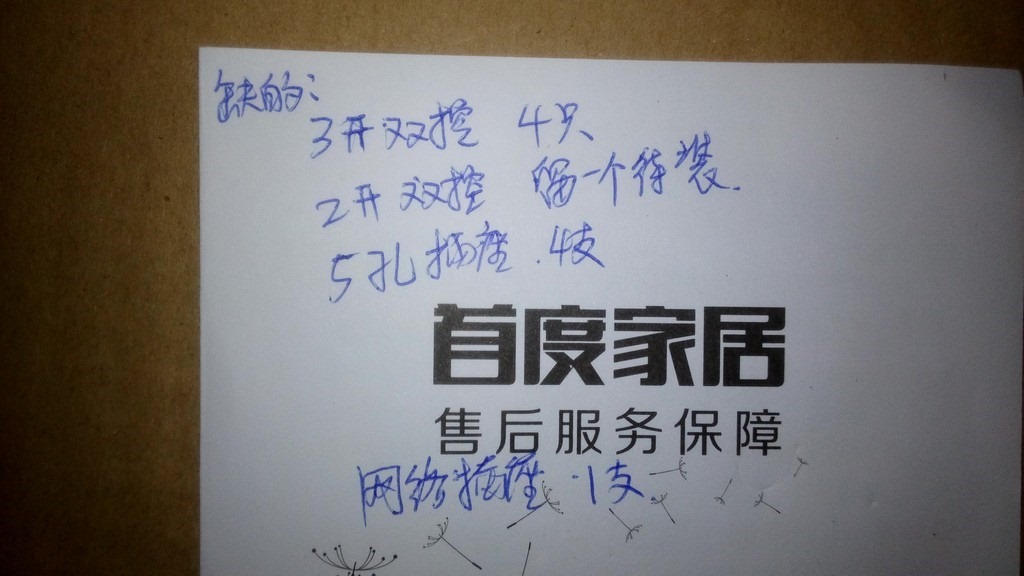 缺的：
3开双控 4只
2开双控 留一个待装.
5孔插座.4支
首度家居
售后服务保障
网络插座.1支